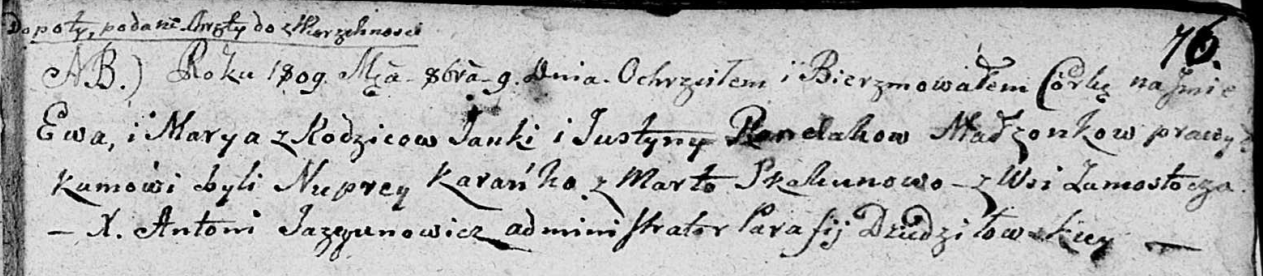 Dopoty, podane Xrzty do zwierzchności
76.
NB.) Roku 1809. Mcą 8brą 9. Dnia Ochrzciłem i Bierzmowałem Córkę na Jmie
Ewa, i Marya z Rodzicow Janki i Justyny Małżonkow prawych
Kumowi byli Nuprey Karańko z Martą Skakunowo z Wsi Zamostocza
– X. Antoni Jazgunowicz administrator Parafij Dziedziłowskiey –